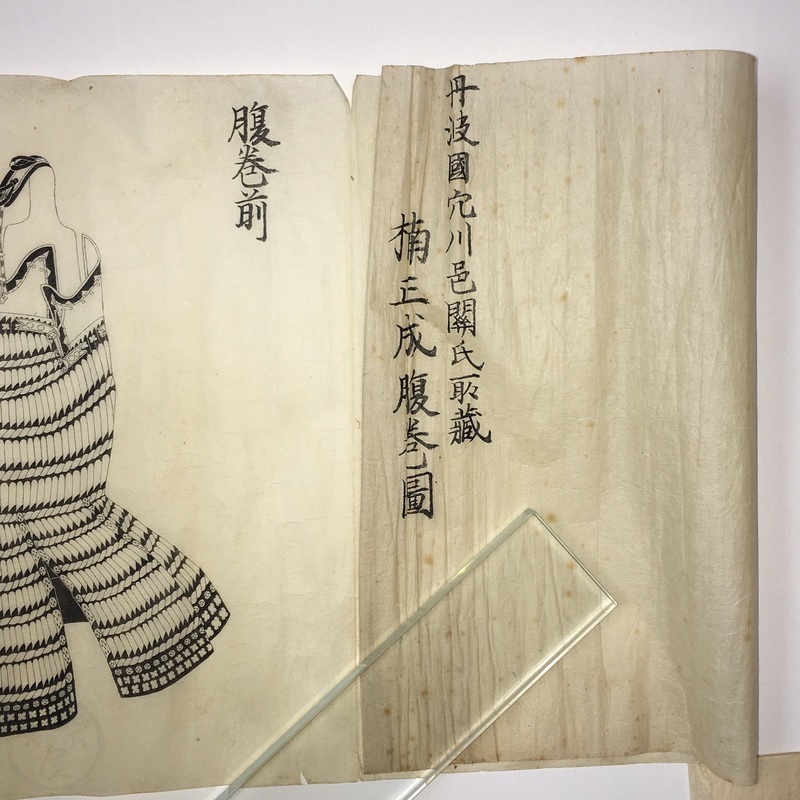 丹波國穴川邑關氏所藏
楠正成腹巻圖
腹巻前